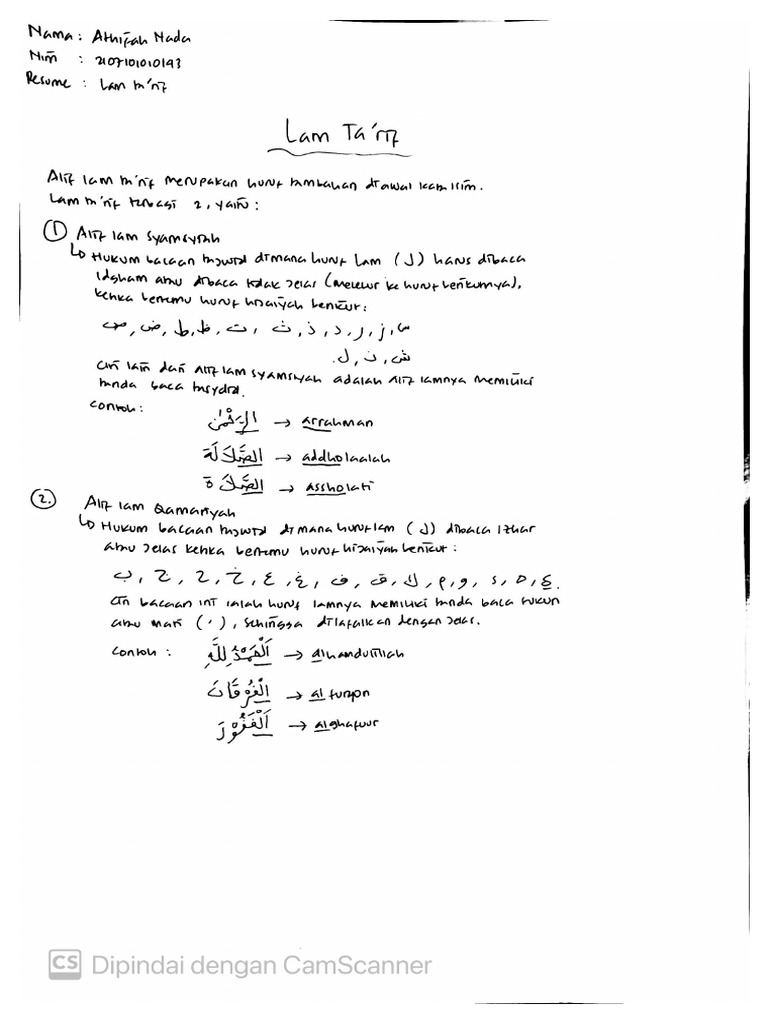 Nama : Athifah Nada
Nim : 2107101010193
Resume : Lam ta'rif
Lam Ta'rif
Alif lam ta'rif merupakan huruf tambahan di awal kata isim.
Lam ta'rif terbagi 2, yaitu :
① Alif lam syamsyiah
↳ Hukum bacaan tajwid dimana huruf Lam (ل) harus dibaca
idgham atau dibaca tidak jelas (melebur ke huruf berikutnya),
ketika bertemu huruf hijaiyah berikut :
س, ز, ر, د, ذ, ث, ت, ظ, ط, ض, ص
ش, ن, ل.
Ciri lain dari Alif lam syamsiyah adalah Alif lamnya memiliki
tanda baca tasydid.
Contoh :
الرَّحْمٰن → arrahman
الضَّلَالَة → addholaalah
الصَّلَاة → assholati
②. Alif lam Qamariyah
↳ Hukum bacaan tajwid dimana huruf lam (ل) dibaca izhar
atau jelas ketika bertemu huruf hijaiyah berikut :
ب, ج, ح, خ, ع, غ, ف, ق, ك, م, و, ه, ء, ي.
Ciri bacaan ini ialah huruf lamnya memiliki tanda baca sukun
atau mati (ْ), sehingga dilafalkan dengan jelas.
Contoh :
اَلْحَمْدُ لِلَّهِ → alhamdulillah
الْفُرْقَانَ → al furqon
اَلْغَفُوْرَ → alghafuur
CS Dipindai dengan CamScanner